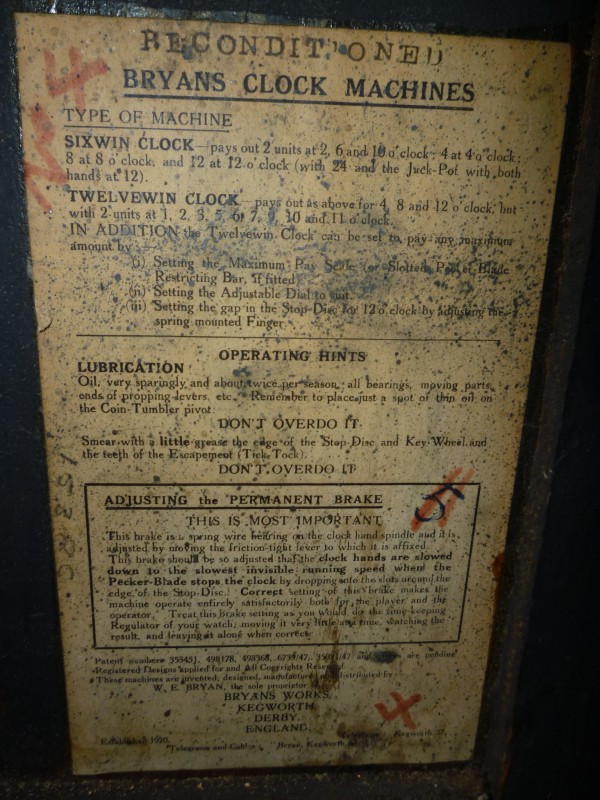 RECONDITIONED
BRYANS CLOCK MACHINES
TYPE OF MACHINE
SIXWIN CLOCK—pays out 2 units at 2, 6 and 10 o'clock; 4 at 4 o'clock;
8 at 8 o'clock, and 12 at 12 o'clock (with 24 and the Juck-Pot with both
hands at 12).
TWELVEWIN CLOCK—pays out as above for 4, 8 and 12 o'clock, but
with 2 units at 1, 2, 3, 5, 6, 7, 9, 10 and 11 o'clock.
IN ADDITION the Twelvewin Clock can be set to pay any maximum
amount by :—
(i) Setting the Maximum Pay Scale (or Slotted Blade
Restricting Bar, if fitted)
(ii) Setting the Adjustable Dial to suit.
(iii) Setting the gap in the Stop-Disc for 12 o'clock by adjusting the
spring mounted Finger
OPERATING HINTS
LUBRICATION
Oil, very sparingly and about twice per season, all bearings, moving parts,
ends of propping levers, etc. Remember to place just a spot of thin oil on
the Coin-Tumbler pivot.
DON'T OVERDO IT
Smear with a little grease the edge of the Stop-Disc and Key-Wheel and
the teeth of the Escapement (Tick-Tock).
DON'T OVERDO IT
5
ADJUSTING the PERMANENT BRAKE
THIS IS MOST IMPORTANT
This brake is a spring wire bearing on the clock hand spindle and it is
adjusted by moving the friction-tight lever to which it is affixed.
This brake should be so adjusted that the clock hands are slowed
down to the slowest invisible running speed when the
Pecker-Blade stops the clock by dropping into the slots around the
edge of the Stop-Disc. Correct setting of this brake makes the
machine operate entirely satisfactorily both for the player and the
operator. Treat this brake setting as you would do the time-keeping
Regulator of your watch, moving it very little at a time, watching the
result, and leaving it alone when correct.
Patent numbers 355451, 498178, 498368, 6739/47, are pending
Registered Designs applied for and All Copyrights Reserved.
These machines are invented, designed, manufactured and distributed by
W. E. BRYAN, the sole proprietor
BRYANS WORKS,
KEGWORTH,
DERBY,
ENGLAND.
4
Established 1920. Kegworth
Telegrams and Cables Bryan, Kegworth